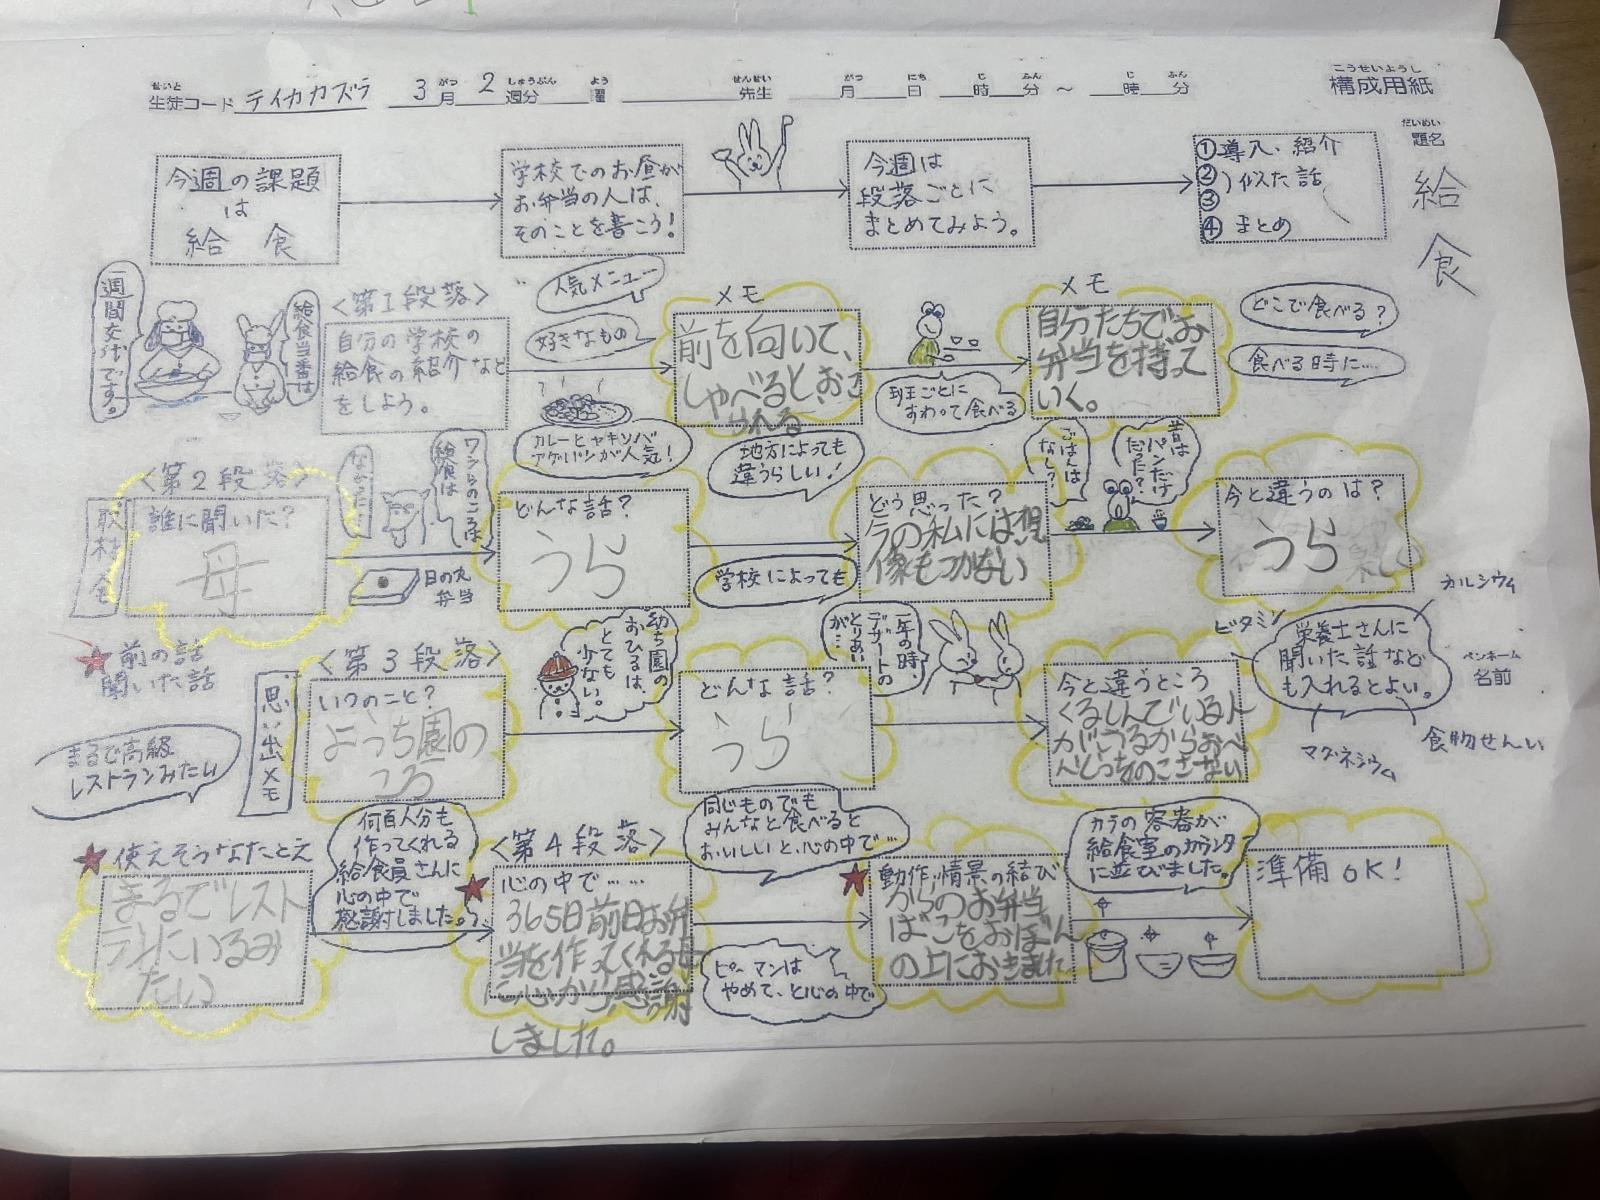 構成用紙
こうせいようし
生徒コード テイカカズラ 3月 2週分 曜 先生 月 日 時 分 ～ 時 分
せいと がつ しゅうぶん よう せんせい がつ にち じ ふん じ ふん
だいめい
題名
給食
今週の課題
は
給 食
学校でのお昼が
お弁当の人は、
そのことを書こう!
今週は
段落ごとに
まとめてみよう。
①導入、紹介
②
③
)似た話
④まとめ
一週間交代です。
給食当番は
<第1段落>
自分の学校の
給食の紹介など
をしよう。
人気メニュー
好きなもの
カレーとヤキソバ
アゲパンが人気!
メモ
前を向いて、
しゃべるとおこ
られる
班ごとに
すわって食べる
メモ
自分たちでお
弁当を持って
いく。
どこで食べる?
食べる時に……
<第2段落>
取材メモ
誰に聞いた?
母
なかった
ワシらのころは
給食は
日の丸
弁当
どんな話?
うら
地方によっても
違うらしい!
学校によっても
どう思った?
今の私には想
像もつかない
ごはんは
なし?
昔は
パンだけ
だった?
今と違うのは?
うら
★前の話
聞いた話
<第3段落>
思い出メモ
いつのこと?
ようち園の
ころ
幼ち園の
おひるは、
とても
少ない。
どんな話?
うら
一年の時、
デザートの
とりあい
が…
今と違うところ
くるしんでいる人
がいるからおべ
んとうをのこさない
カルシウム
ビタミン
栄養士さんに
聞いた話など
も入れるとよい。
マグネシウム
食物せんい
ペンネーム
名前
まるで高級
レストランみたい
★使えそうなたとえ
まるでレスト
ランにいるみ
たい
何百人分も
作ってくれる
給食員さんに
心の中で
感謝しました。
<第4段落>
★心の中で……
365日前日お弁
当を作ってくれる母
に心から感謝
しました。
同じものでも
みんなと食べると
おいしいと、心の中で…
ピーマンは
やめて、と心の中で
★動作、情景の結び
からのお弁当
ばこをおぼん
の上におきました
カラの容器が
給食室のカウンター
に並びました。
準備OK!